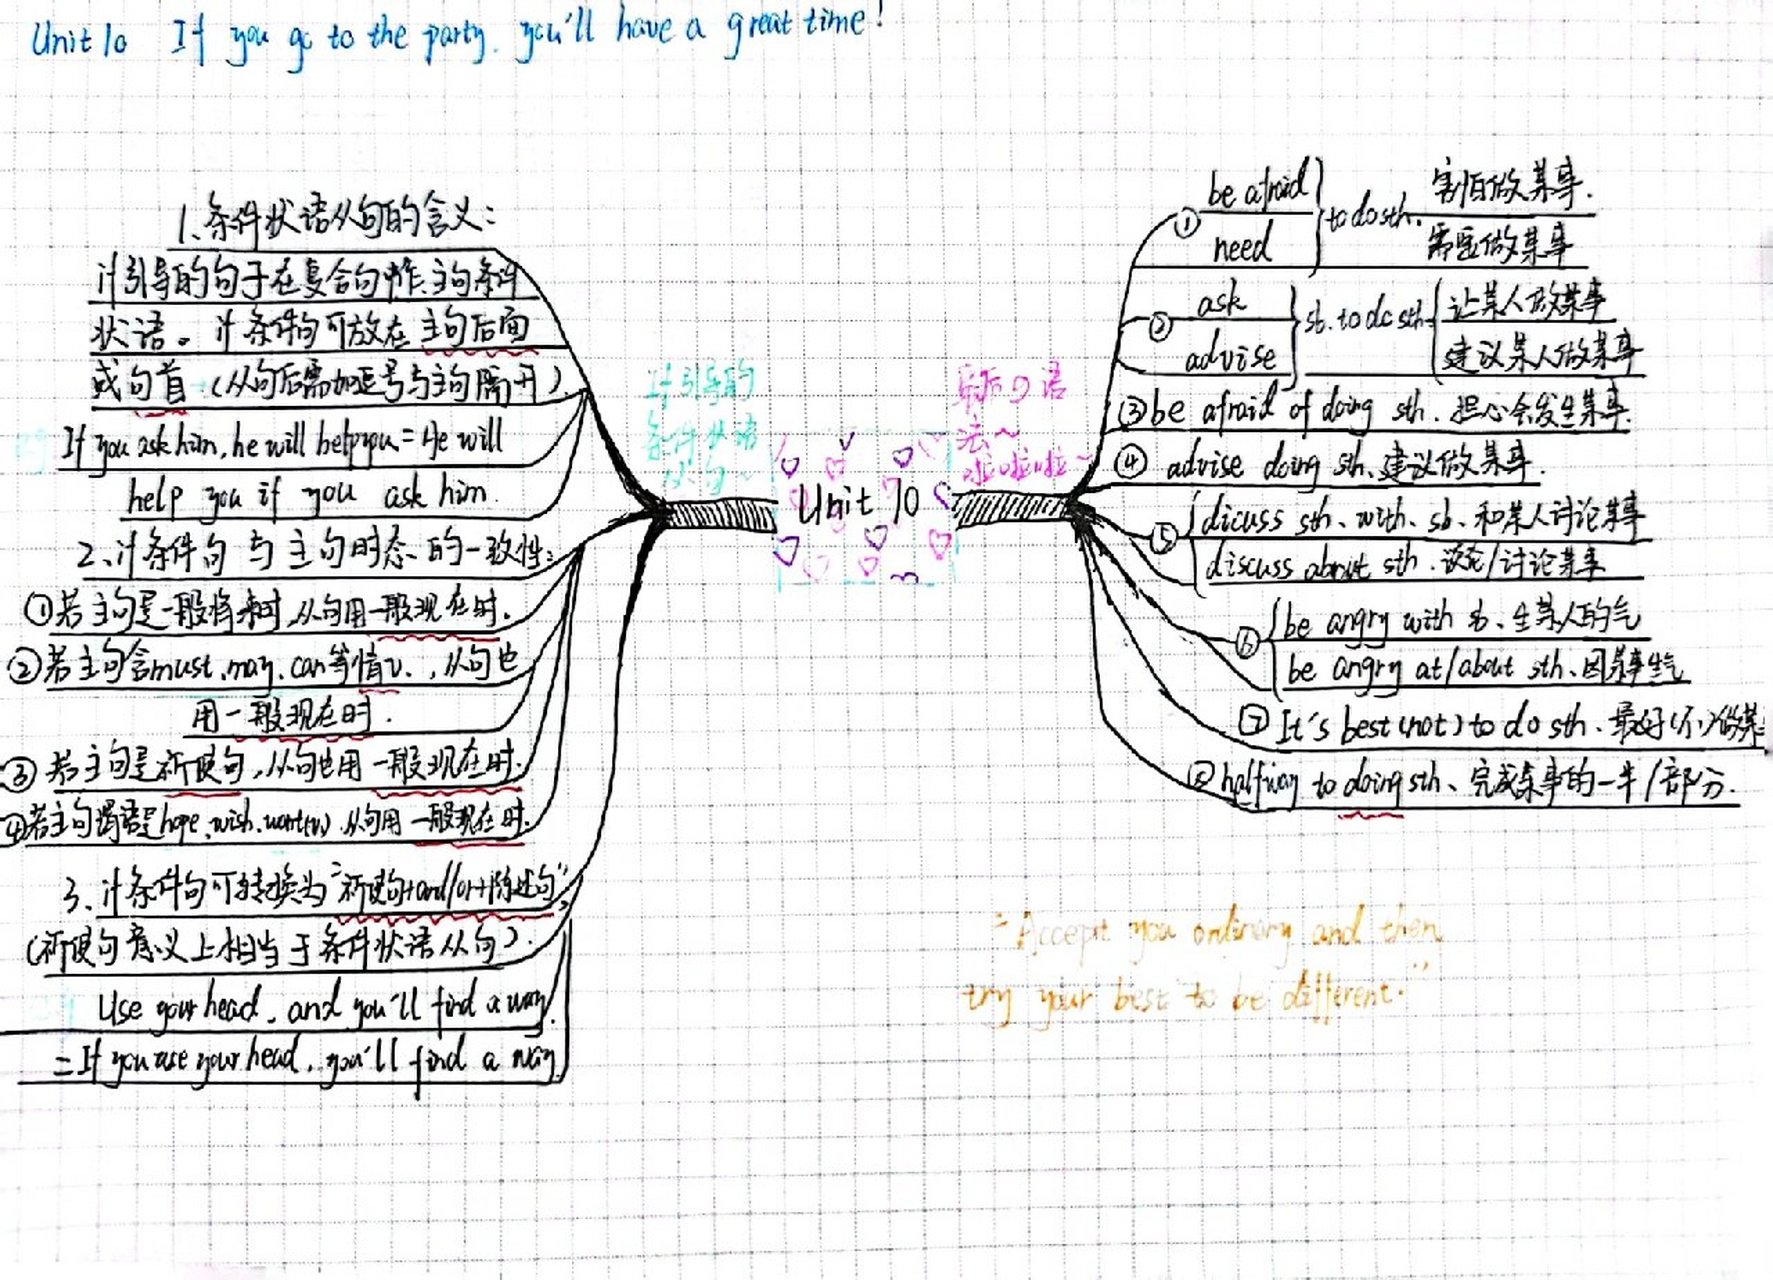 Unit 10 If you go to the party, you'll have a great time!
1、条件状语从句的含义：
if引导的句子在复合句中作主句条件
状语。if条件句可放在主句后面
或句首（从句后需加逗号与主句隔开）
If you ask him, he will help you = He will
help you if you ask him.
2、if条件句与主句时态的一致性：
①若主句是一般将来时，从句用一般现在时。
②若主句含must、may、can等情v.，从句也
用一般现在时.
③若主句是祈使句，从句也用一般现在时.
④若主句谓语是hope、wish、want(v)，从句用一般现在时.
3、if条件句可转换为"祈使句+and/or+陈述句"，
（祈使句意义上相当于条件状语从句）.
Use your head, and you'll find a way.
=If you use your head, you'll find a way.
if引导的
条件状语
从句~
Unit 10
① be afraid
need
to do sth.
害怕做某事.
需要做某事
② ask
advise
sb. to do sth
让某人做某事
建议某人做某事
③be afraid of doing sth. 担心会发生某事.
④ advise doing sth、建议做某事.
⑤ dicuss sth、with、sb、和某人讨论某事
discuss about sth. 谈论/讨论某事
⑥ be angry with sb、生某人的气
be angry at/about sth、因某事生气
⑦ It's best (not) to do sth. 最好(不)做某
⑧ halfway to doing sth、完成某事的一半/部分.
"Accept you ordinary and then
try your best to be different."